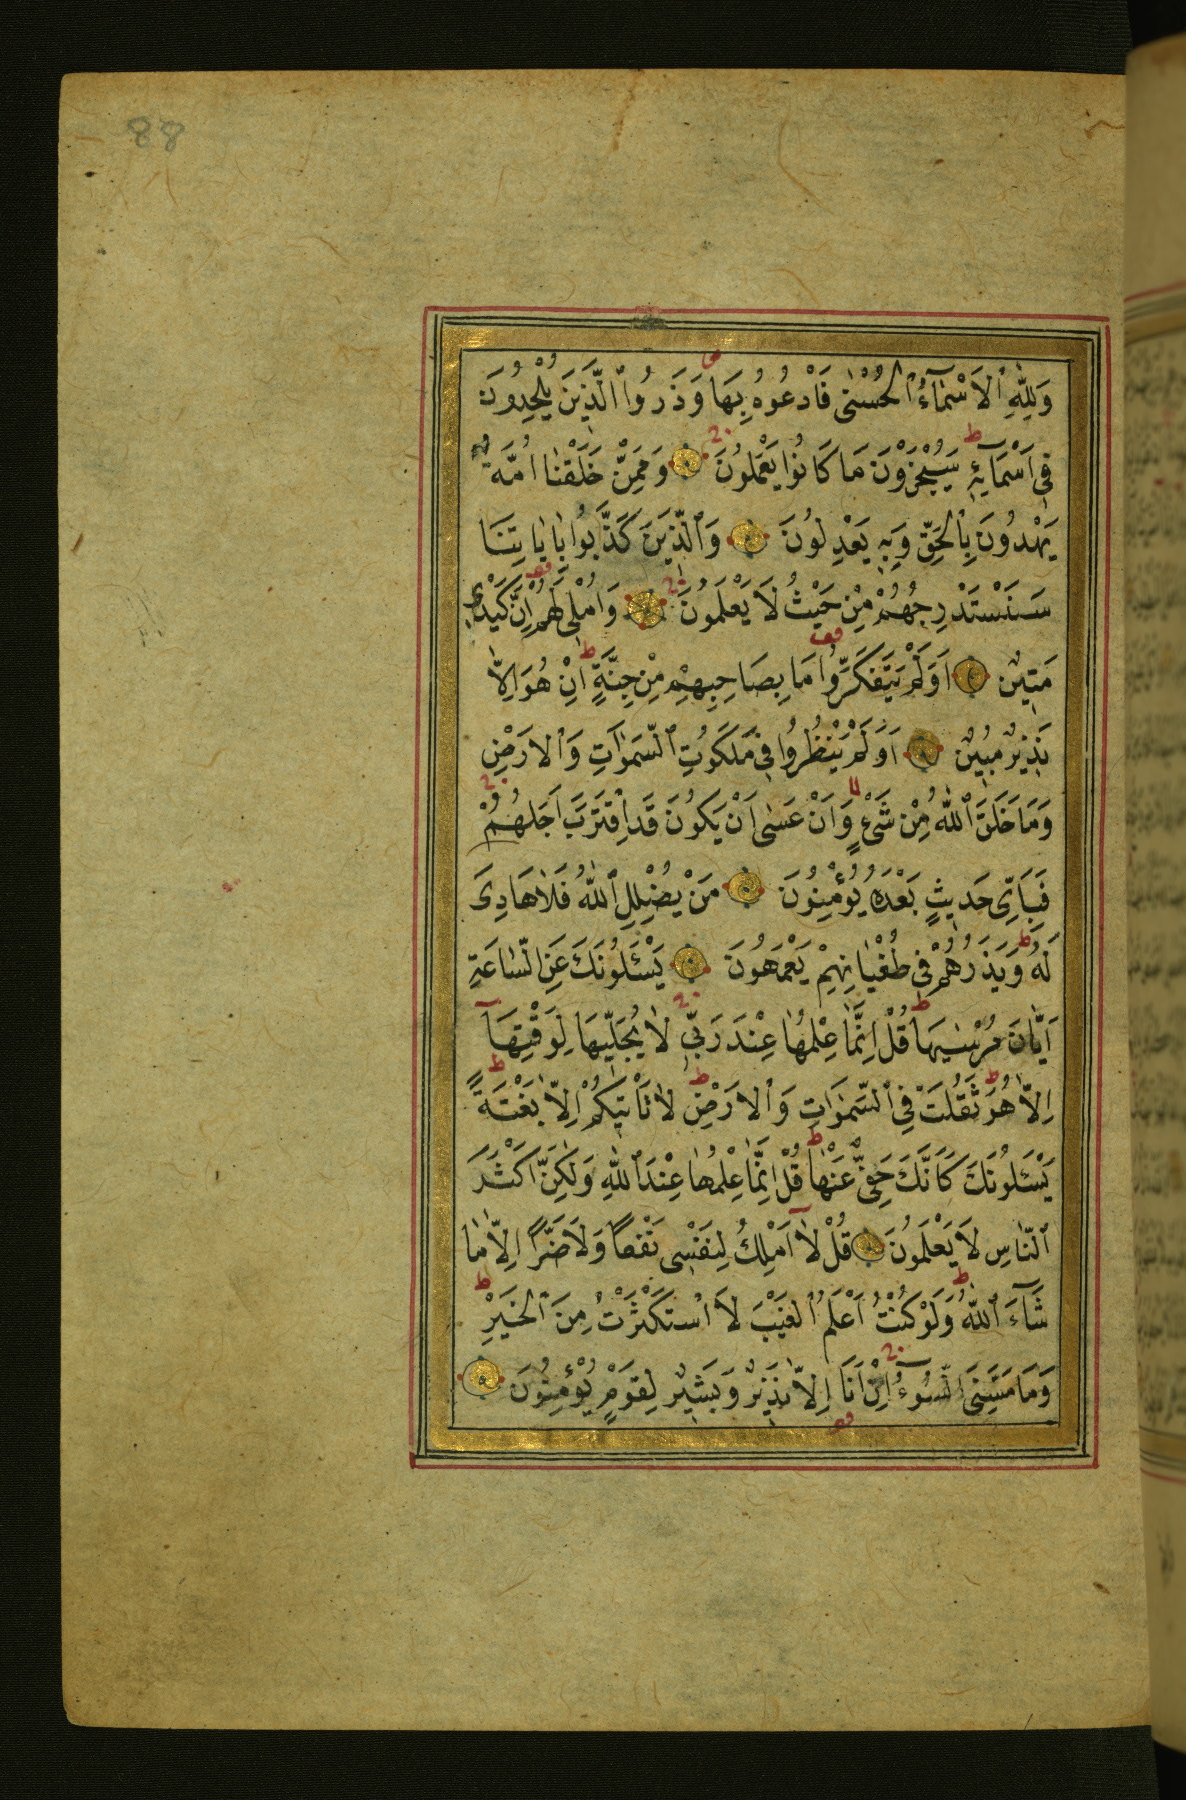 88
وَلِلّٰهِ ٱلْاَسْمَآءُ ٱلْحُسْنٰى فَادْعُوهُ بِهَا وَذَرُوا ٱلَّذِينَ يُلْحِدُونَ
فِى اَسْمَآئِهٖ سَيُجْزَوْنَ مَا كَانُوا يَعْمَلُونَ وَمِمَّنْ خَلَقْنٰا اُمَّةٌ
يَهْدُونَ بِٱلْحَقِّ وَبِهٖ يَعْدِلُونَ وَٱلَّذِينَ كَذَّبُوا بِاٰيٰاتِنَا
سَنَسْتَدْرِجُهُمْ مِنْ حَيْثُ لَا يَعْلَمُونَ وَاُمْلِى لَهُمْ اِنَّ كَيْدِى
مَتِينٌ اَوَلَمْ يَتَفَكَّرُوا مَا بِصَاحِبِهِمْ مِنْ جِنَّةٍ اِنْ هُوَ اِلَّا
نَذِيرٌ مُبِينٌ اَوَلَمْ يَنْظُرُوا فِى مَلَكُوتِ ٱلسَّمٰوَاتِ وَٱلْاَرْضِ
وَمَا خَلَقَ ٱللّٰهُ مِنْ شَىْءٍ وَاَنْ عَسٰى اَنْ يَكُونَ قَدِ اقْتَرَبَ اَجَلُهُمْ
فَبِاَىِّ حَدِيثٍ بَعْدَهُ يُؤْمِنُونَ مَنْ يُضْلِلِ ٱللّٰهُ فَلَا هَادِىَ
لَهُ وَيَذَرُهُمْ فِى طُغْيٰانِهِمْ يَعْمَهُونَ يَسْـَٔلُونَكَ عَنِ ٱلسّٰاعَةِ
اَيَّانَ مُرْسٰيهَا قُلْ اِنَّمٰا عِلْمُهٰا عِنْدَ رَبِّى لَا يُجَلِّيهَا لِوَقْتِهَآ
اِلَّا هُوَ ثَقُلَتْ فِى ٱلسَّمٰوَاتِ وَٱلْاَرْضِ لَا تَأْتِيكُمْ اِلَّا بَغْتَةً
يَسْـَٔلُونَكَ كَاَنَّكَ حَفِىٌّ عَنْهَا قُلْ اِنَّمٰا عِلْمُهٰا عِنْدَ ٱللّٰهِ وَلٰكِنَّ اَكْثَرَ
ٱلنّٰاسِ لَا يَعْلَمُونَ قُلْ لَآ اَمْلِكُ لِنَفْسِى نَفْعًا وَلَا ضَرًّا اِلَّا مٰا
شَآءَ ٱللّٰهُ وَلَوْ كُنْتُ اَعْلَمُ ٱلْغَيْبَ لَا اسْتَكْثَرْتُ مِنَ ٱلْخَيْرِ
وَمَا مَسَّنِىَ ٱلسُّوٓءُ اِنْ اَنَا اِلَّا نَذِيرٌ وَبَشِيرٌ لِقَوْمٍ يُؤْمِنُونَ